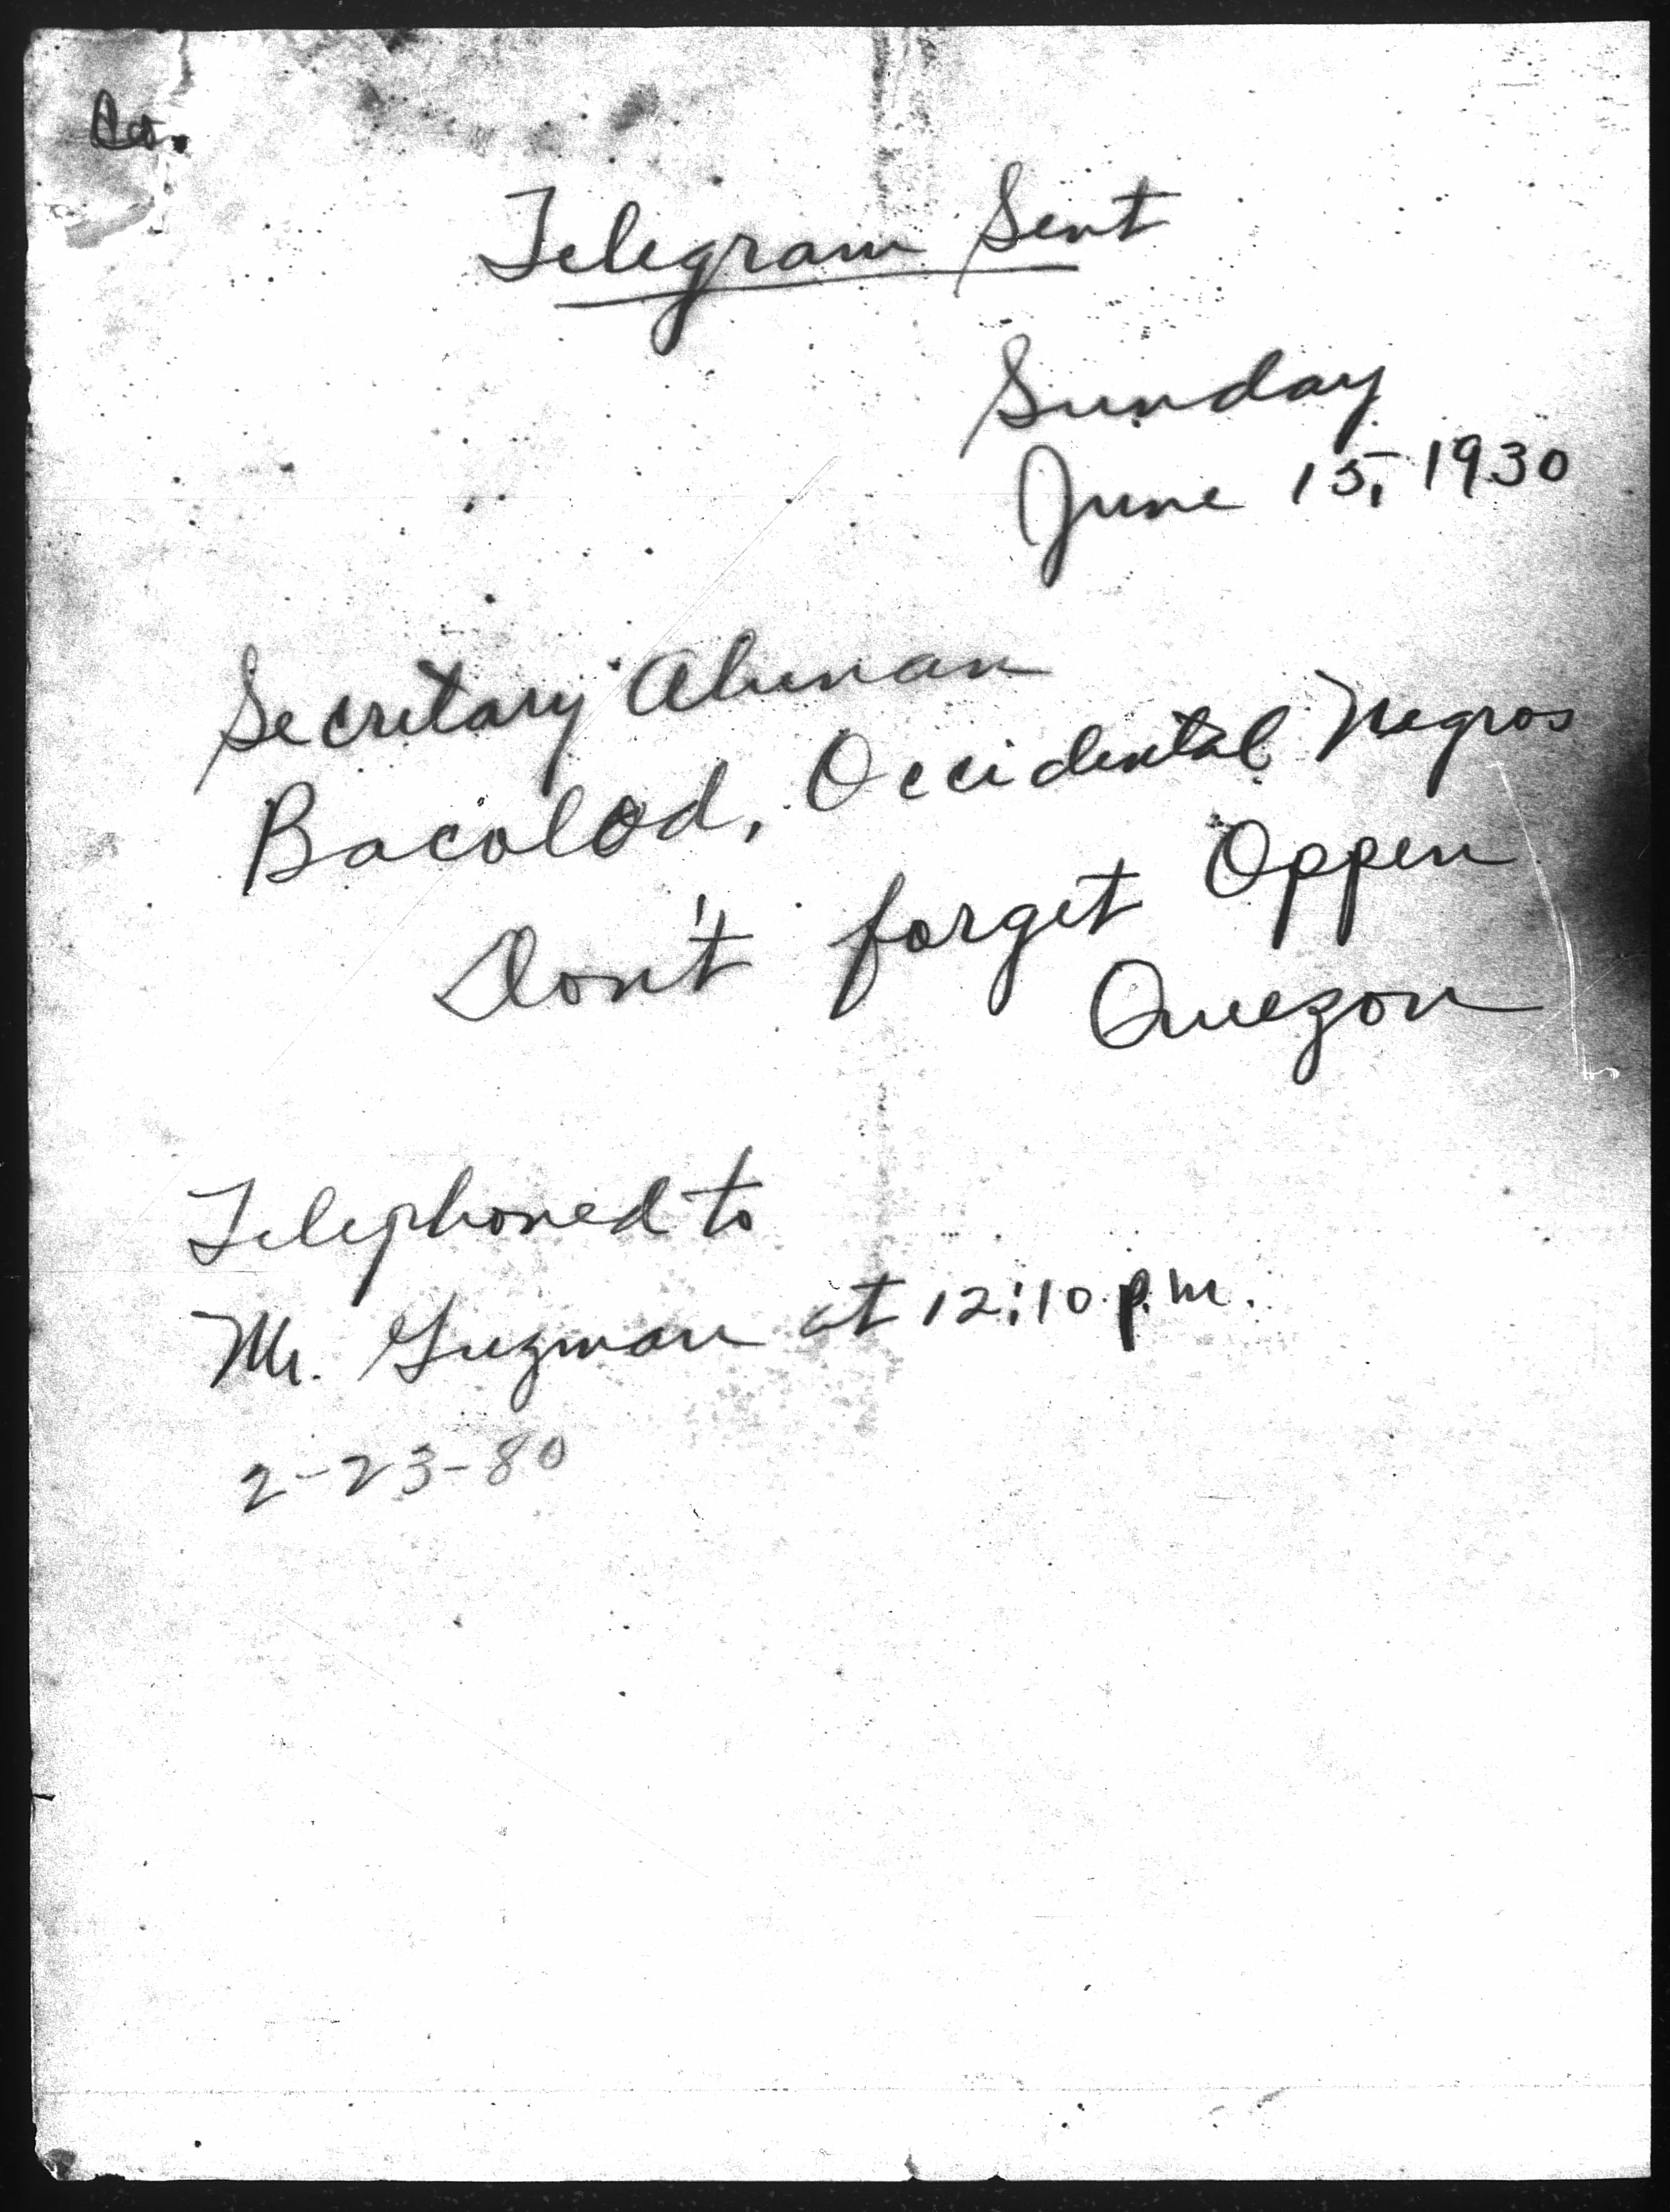 Co.
Telegram Sent
Sunday
June 15, 1930
Secretary Alunan
Bacolod, Occidental Negros
Don't forget Oppen
Quezon
Telephoned to
Mr. Guzman at 12:10 p.m.
2-23-80